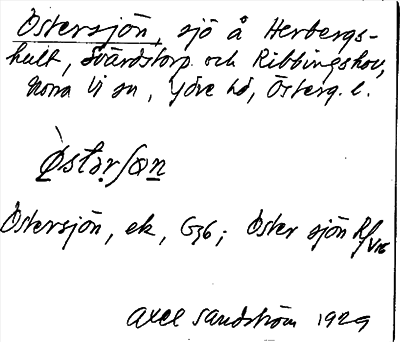 Östersjön, sjö å Herbergs-
hult, Svärdstorp och Ribbingshov,
Norra Vi sn, Ydre hd, Österg. l.
Östersjön, ek, G36; Öster sjön
Axel Sandström 1929